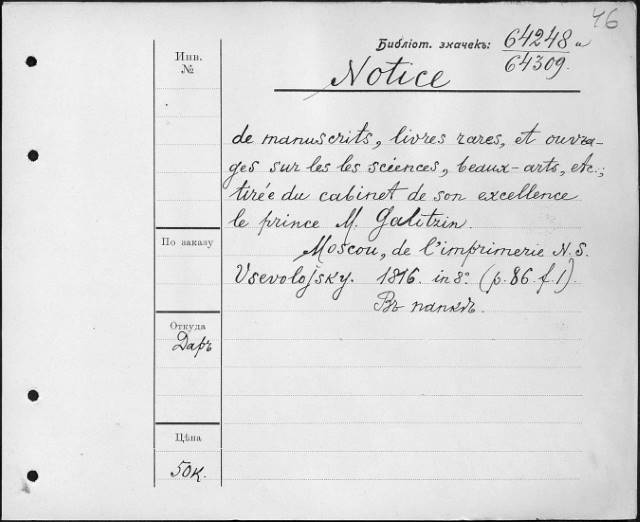 46
Библіот. значекъ: 64248 и
64309.
Инв.
№
Notice
de manuscrits, livres rares, et ouvra-
ges sur les les sciences, beaux-arts, etc.;
tirée du cabinet de son excellence
le prince M. Galitzin.
По заказу
Moscou, de l'imprimerie N. S.
Vsevolojsky. 1816. in 8° (p. 86 f. 1).
Въ папкѣ.
Откуда
Даръ
Цѣна
50к.